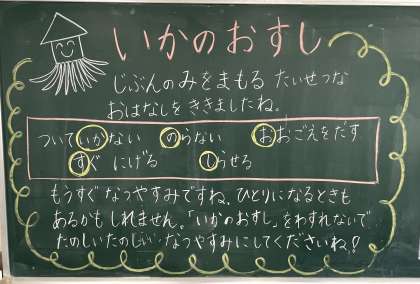 いかのおすし
じぶんのみをまもる たいせつな
おはなしをききましたね。
ついていかない のらない おおごえをだす
すぐ にげる しらせる
もうすぐ なつやすみですね。ひとりになるときも
あるかも しれません。「いかのおすし」をわすれないで
たのしいたのしい なつやすみにしてくださいね!